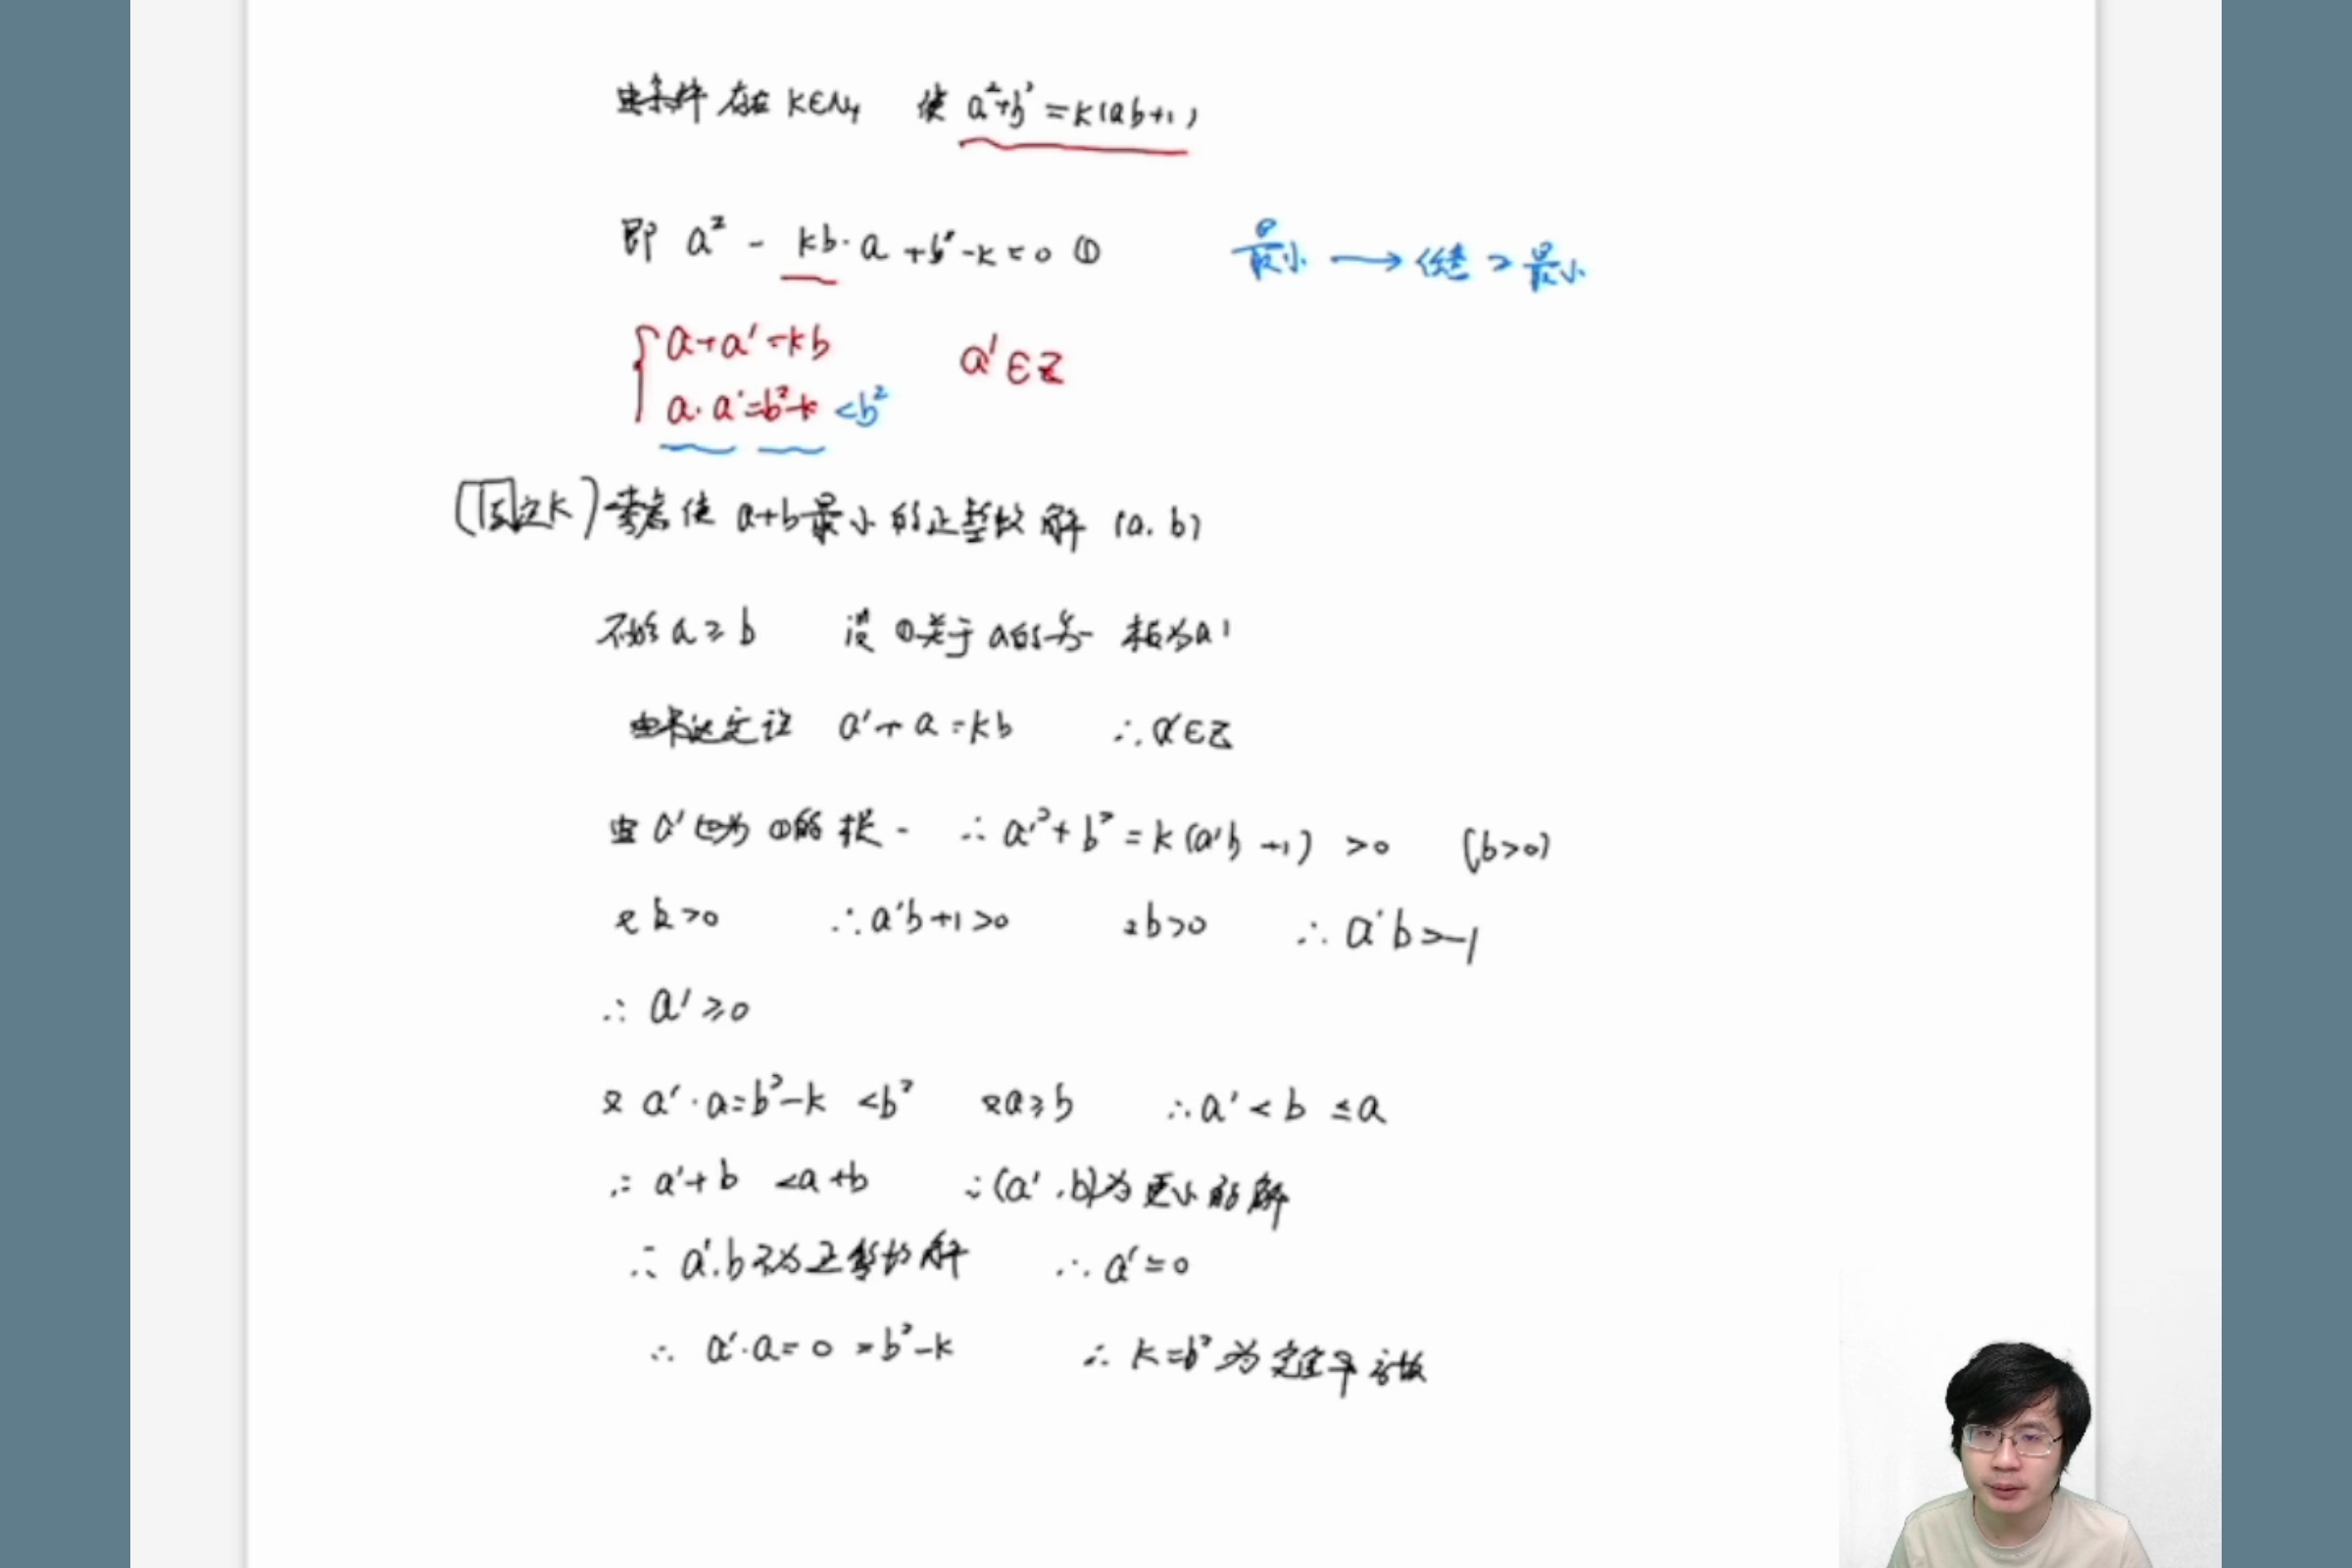 由条件 存在 k∈N₊ 使 a²+b²=k(ab+1)
即 a² - kb·a +b²-k=0 ①
最小 → 继续 > 最小
a+a'=kb a'∈Z
a·a'=b²-k <b²
(固定k) 考虑使 a+b最小的正整数解 (a,b)
不妨 a≥b 设①关于a的另一根为a'
由韦达定理 a'+a=kb ∴a'∈Z
由 a'也为①的根 ∴ a'²+b²=k(a'b+1) >0 (b>0)
又 k>0 ∴a'b+1>0 又b>0 ∴a'b>-1
∴ a'≥0
又 a'·a=b²-k <b² 又a≥b ∴a'<b≤a
∴ a'+b <a+b ∴(a',b)为更小的解
∴ a',b不为正整数解 ∴a'=0
∴ a'·a=0=b²-k ∴ k=b²为完全平方数